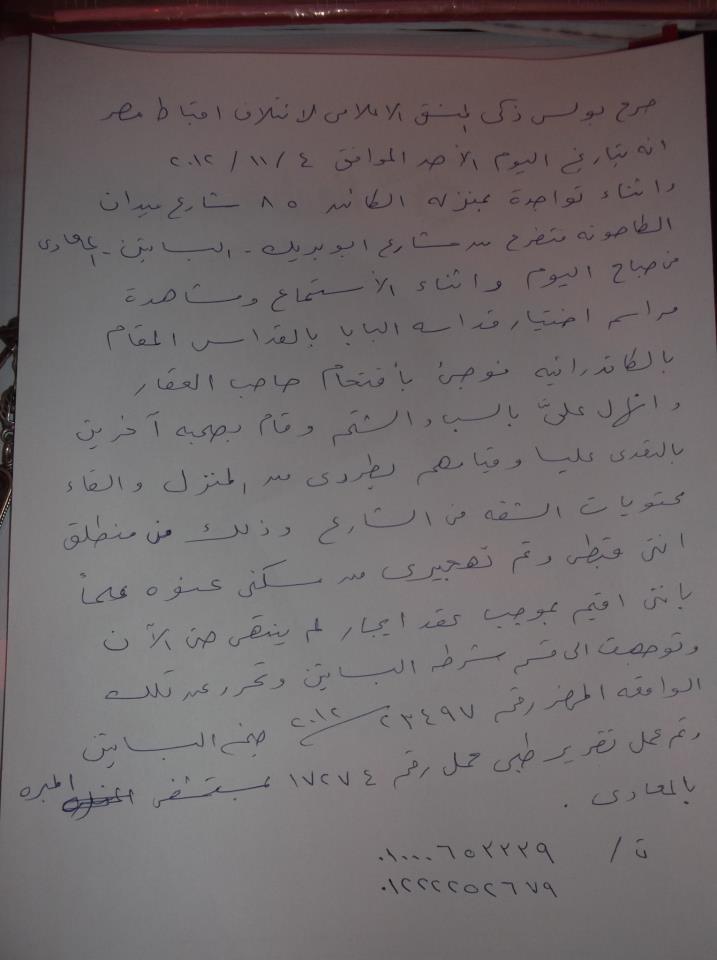 صرح بولس زكى المنسق الاعلامى لائتلاف اقباط مصر
انه بتاريخ اليوم الأحد الموافق ٤ / ١١ / ٢٠١٢
واثناء تواجدة بمنزله الكائن ٨٥ شارع ميدان
الطاحونه متفرع من شارع ابو بريك - البساتين - المعادى
من صباح اليوم واثناء الأستماع ومشاهدة
مراسم اختيار قداسه البابا بالقداس المقام
بالكاتدرائيه فوجئ بأقتحام صاحب العقار
وانهال علىَّ بالسب والشتم وقام بصحبه آخرين
بالتعدى علينا وقيامهم بطردى من المنزل والقاء
محتويات الشقه من الشارع وذلك من منطلق
اننى قبطى وتم تهجيرى من سكنى عنوه علماً
بأننى اقيم بموجب عقد ايجار لم ينتهى حتى الآن
وتوجهت الى قسم شرطه البساتين وتحرر عن تلك
الواقعه المحضر رقم ٢٣٤٩٧ / ٢٠١٢ جنح البساتين
وتم عمل تقرير طبى حمل رقم ١٧٢٧٤ بمستشفى المبره
بالمعادى .
ت / ٠١٠٠٠٦٥٢٢٣٩
٠١٢٢٢٢٥٢٦٧٩